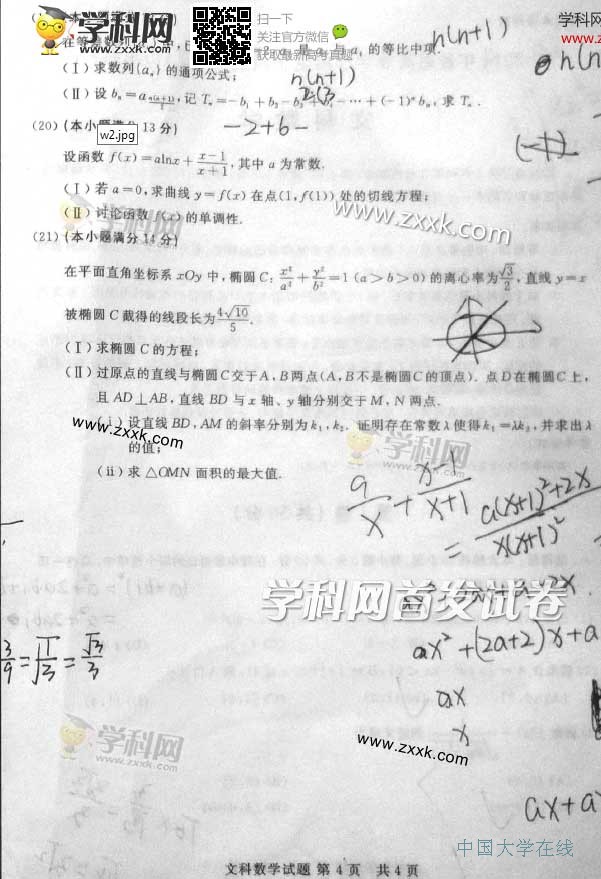 学科网 www.zxxk.com
扫一扫
关注官方微信
获取最新高考真题
学科网
www.zxxk
n(n+1)
的等比中项.
(Ⅰ) 求数列{aₙ}的通项公式;
n(n+1)
(Ⅱ) 设 bₙ=a_{n(n+1)/2},记 Tₙ=-b₁+b₂-b₃+…+(-1)ⁿbₙ,求 Tₙ.
-2+6-
w2.jpg
(20) (本小题满分 13 分)
设函数 f(x)=alnx+(x-1)/(x+1),其中 a 为常数.
(Ⅰ) 若 a=0,求曲线 y=f(x)在点(1,f(1))处的切线方程;
(Ⅱ) 讨论函数 f(x)的单调性.
学科网
www.zxxk.com
(21) (本小题满分 14 分)
在平面直角坐标系 xOy 中,椭圆 C: x²/a²+y²/b²=1 (a>b>0)的离心率为√3/2,直线 y=x
被椭圆 C 截得的线段长为4√10/5.
(Ⅰ) 求椭圆 C 的方程;
(Ⅱ) 过原点的直线与椭圆 C 交于 A,B 两点(A,B 不是椭圆 C 的顶点). 点 D 在椭圆 C 上,
且 AD⊥AB,直线 BD 与 x 轴、y 轴分别交于 M,N 两点.
(ⅰ) 设直线 BD,AM 的斜率分别为 k₁,k₂. 证明存在常数 λ 使得 k₁=λk₂,并求出 λ
的值;
www.zxxk.com
学科网
www.zxxk.com
(ii) 求 △OMN 面积的最大值.
a/x + (x-1)/(x+1)
= (a(x+1)²+2x)/(x(x+1)²)
学科网首发试卷
ax²+(2a+2)x+a
3/9=√1/3=√3/3
ax
x
学科网
www.zxxk.com
www.zxxk.com
ax+a
中国大学在线
文科数学试题 第 4 页 共 4 页